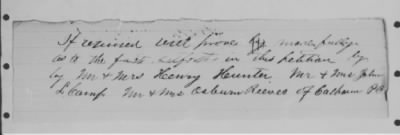 If required will prove by made judge
as to the facts in this petition by
by Mr & Mrs Henry Hunter Mr & Mrs John
L Camp Mr & Mrs Osburn Reeves of Calhoun